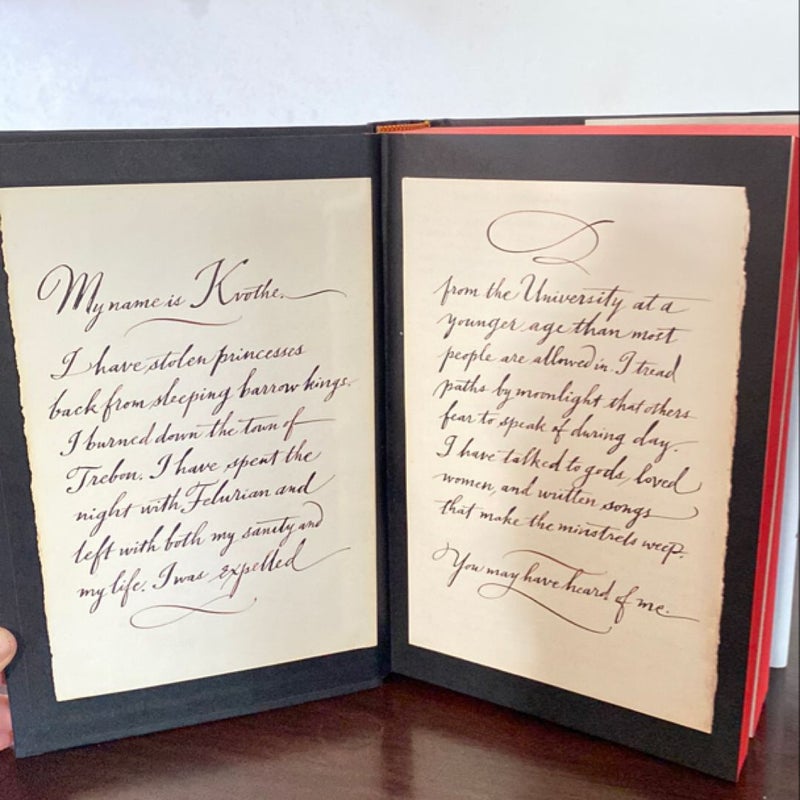 My name is Kvothe.
I have stolen princesses
back from sleeping barrow kings.
I burned down the town of
Trebon. I have spent the
night with Felurian and
left with both my sanity and
my life. I was expelled
from the University at a
younger age than most
people are allowed in. I tread
paths by moonlight that others
fear to speak of during day.
I have talked to gods, loved
women, and written songs
that make the minstrels weep.
You may have heard of me.